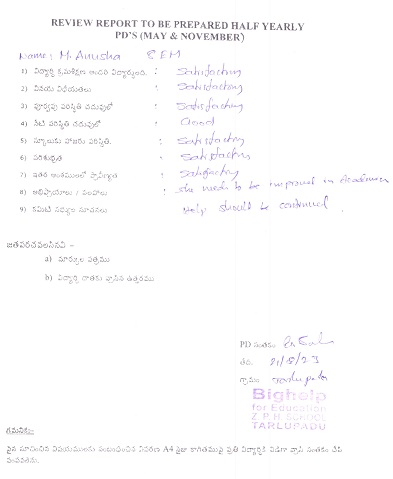 REVIEW REPORT TO BE PREPARED HALF YEARLY
PD'S (MAY & NOVEMBER)
Name: M. Anusha
1) విద్యార్థి క్రమశిక్షణ : Satisfactory
2) వినయ విధేయతలు : Satisfactory
3) పూర్వపు పరిస్థితి చదువులో : Satisfactory
4) నేటి పరిస్థితి చదువులో : Good
5) స్కూలుకు హాజరు పరిస్థితి. : Satisfactory
6) పరిశుభ్రత : Satisfactory
7) ఇతర అంశములలో ప్రావీణ్యత : Satisfactory
8) అభిప్రాయాలు / సలహాలు : She needs to be improved in Academics
9) కమిటీ సభ్యుల సూచనలు Help should be continued
జతపరచవలసినవి –
a) మార్కుల పత్రము
b) విద్యార్థి దాతకు వ్రాసిన ఉత్తరము
PD సంతకం
తేది. 21/5/23
గ్రామం. Tarlupadu
Bighelp
for Education
Z.P.H. SCHOOL
TARLUPADU
గమనిక:
పైన సూచించిన విషయములను సంబంధించిన వివరణ A4 సైజు కాగితముపై ప్రతి విద్యార్థికి విడిగా వ్రాసి సంతకం చేసి
పంపవలెను.